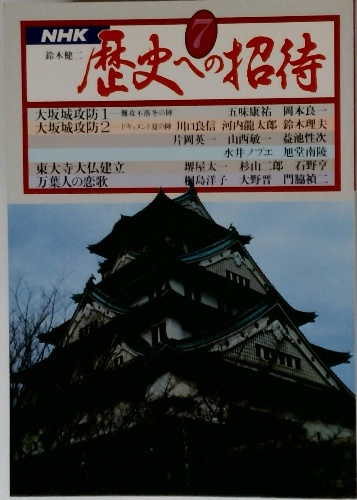 NHK
鈴木健二
歴史への招待
7
大坂城攻防1―難攻不落冬の陣 五味康祐 岡本良一
大坂城攻防2―ドキュメント夏の陣 川口良信 河内龍太郎 鈴木理夫
片岡英一 山西敏一 益池性次
水井ノブエ 旭堂南陵
東大寺大仏建立 堺屋太一 杉山二郎 石野亨
万葉人の恋歌 樋島洋子 大野晋 門脇禎二